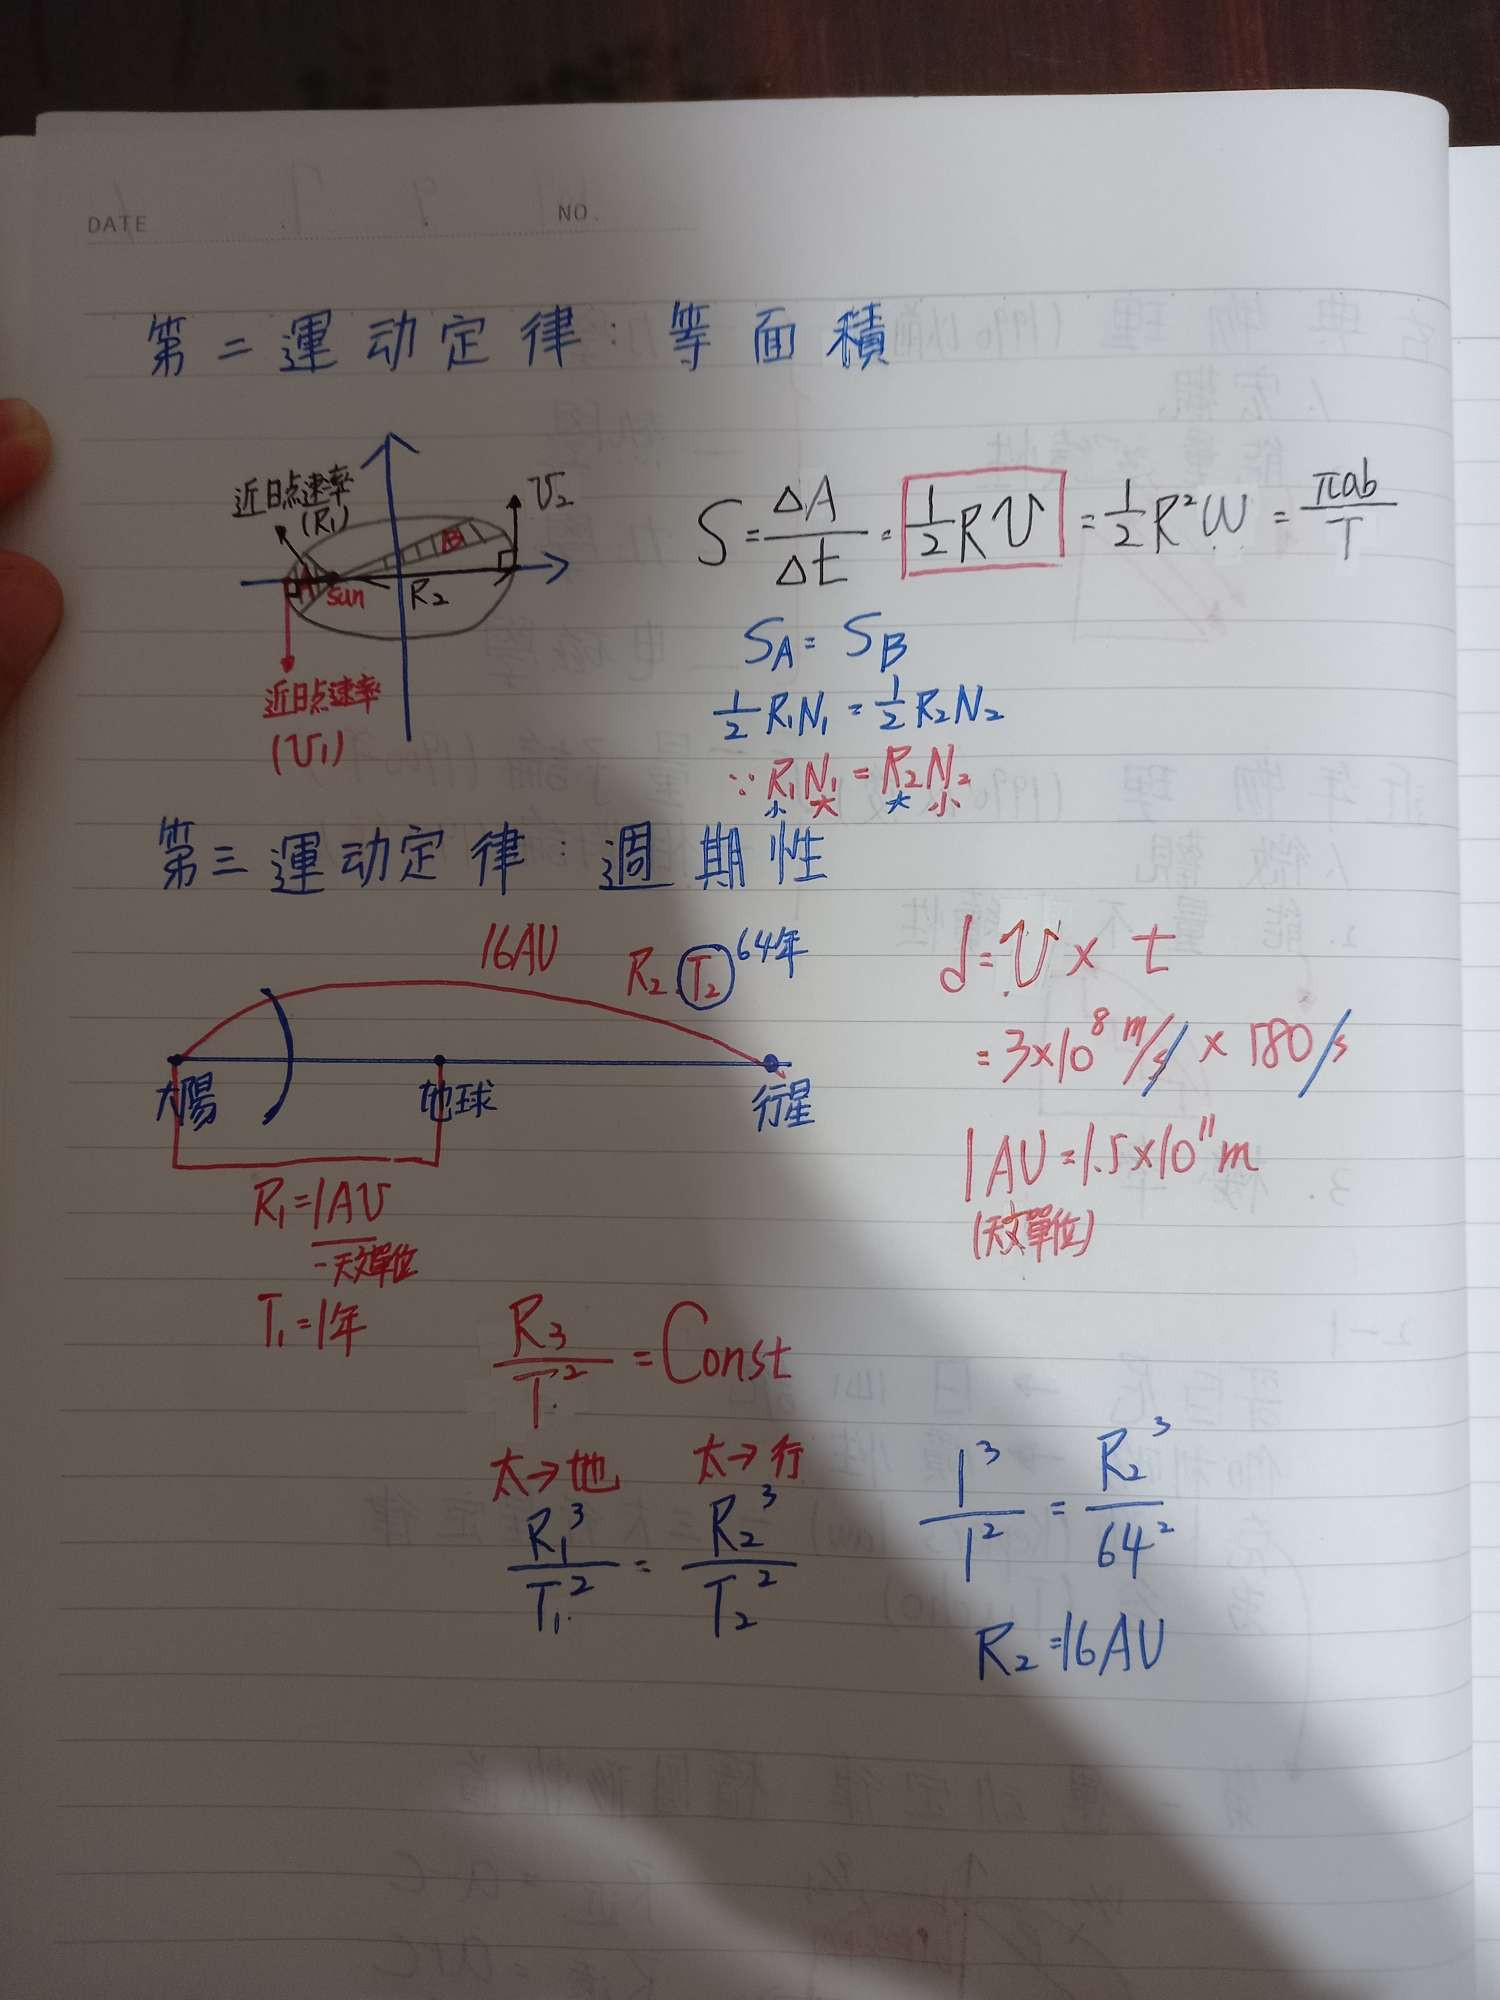 DATE
NO.
第二運动定律:等面積
近日点速率
(R₁)
V₂
A
B
Sun
R₂
近日点速率
(V₁)
S = ΔA/Δt = 1/2 RV = 1/2 R²W = πab/T
S_A = S_B
1/2 R₁N₁ = 1/2 R₂N₂
∵ R₁N₁ = R₂N₂
小 大 大 小
第三運动定律:週期性
16AU
R₂ T₂ 64年
太陽 地球 行星
R₁=1AU
一天文單位
T₁=1年
d = V × t
= 3×10⁸ m/s × 180/s
1AU = 1.5×10¹¹m
(天文單位)
R₃/T² = Const
太→地 太→行
R₁³/T₁² = R₂³/T₂²
1³/1² = R₂³/64²
R₂=16AU